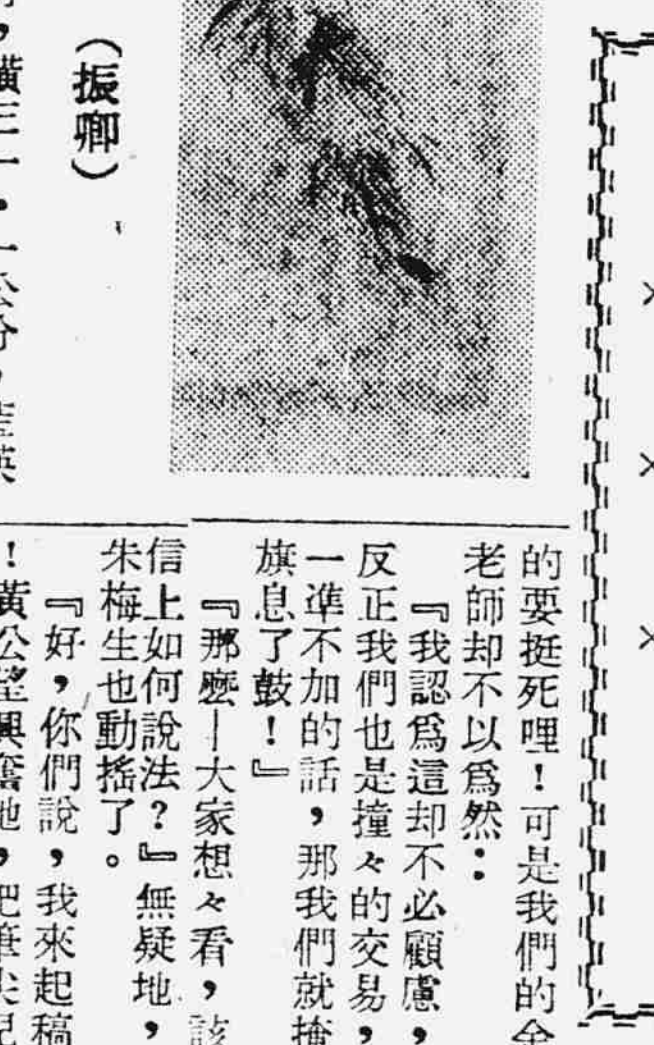 的要挺死哩！可是我們的
老師却不以爲然：
『我認爲這却不必顧慮，
反正我們也是撞々的交易，
一準不加的話，那我們就掩
旗息了鼓！』
『那麽－大家想々看，該
信上如何說法？』無疑地，
朱梅生也動搖了。
『好，你們說，我來起稿
！黃公望興奮地，把筆尖兒
（振卿）
，橫三一・一公分，